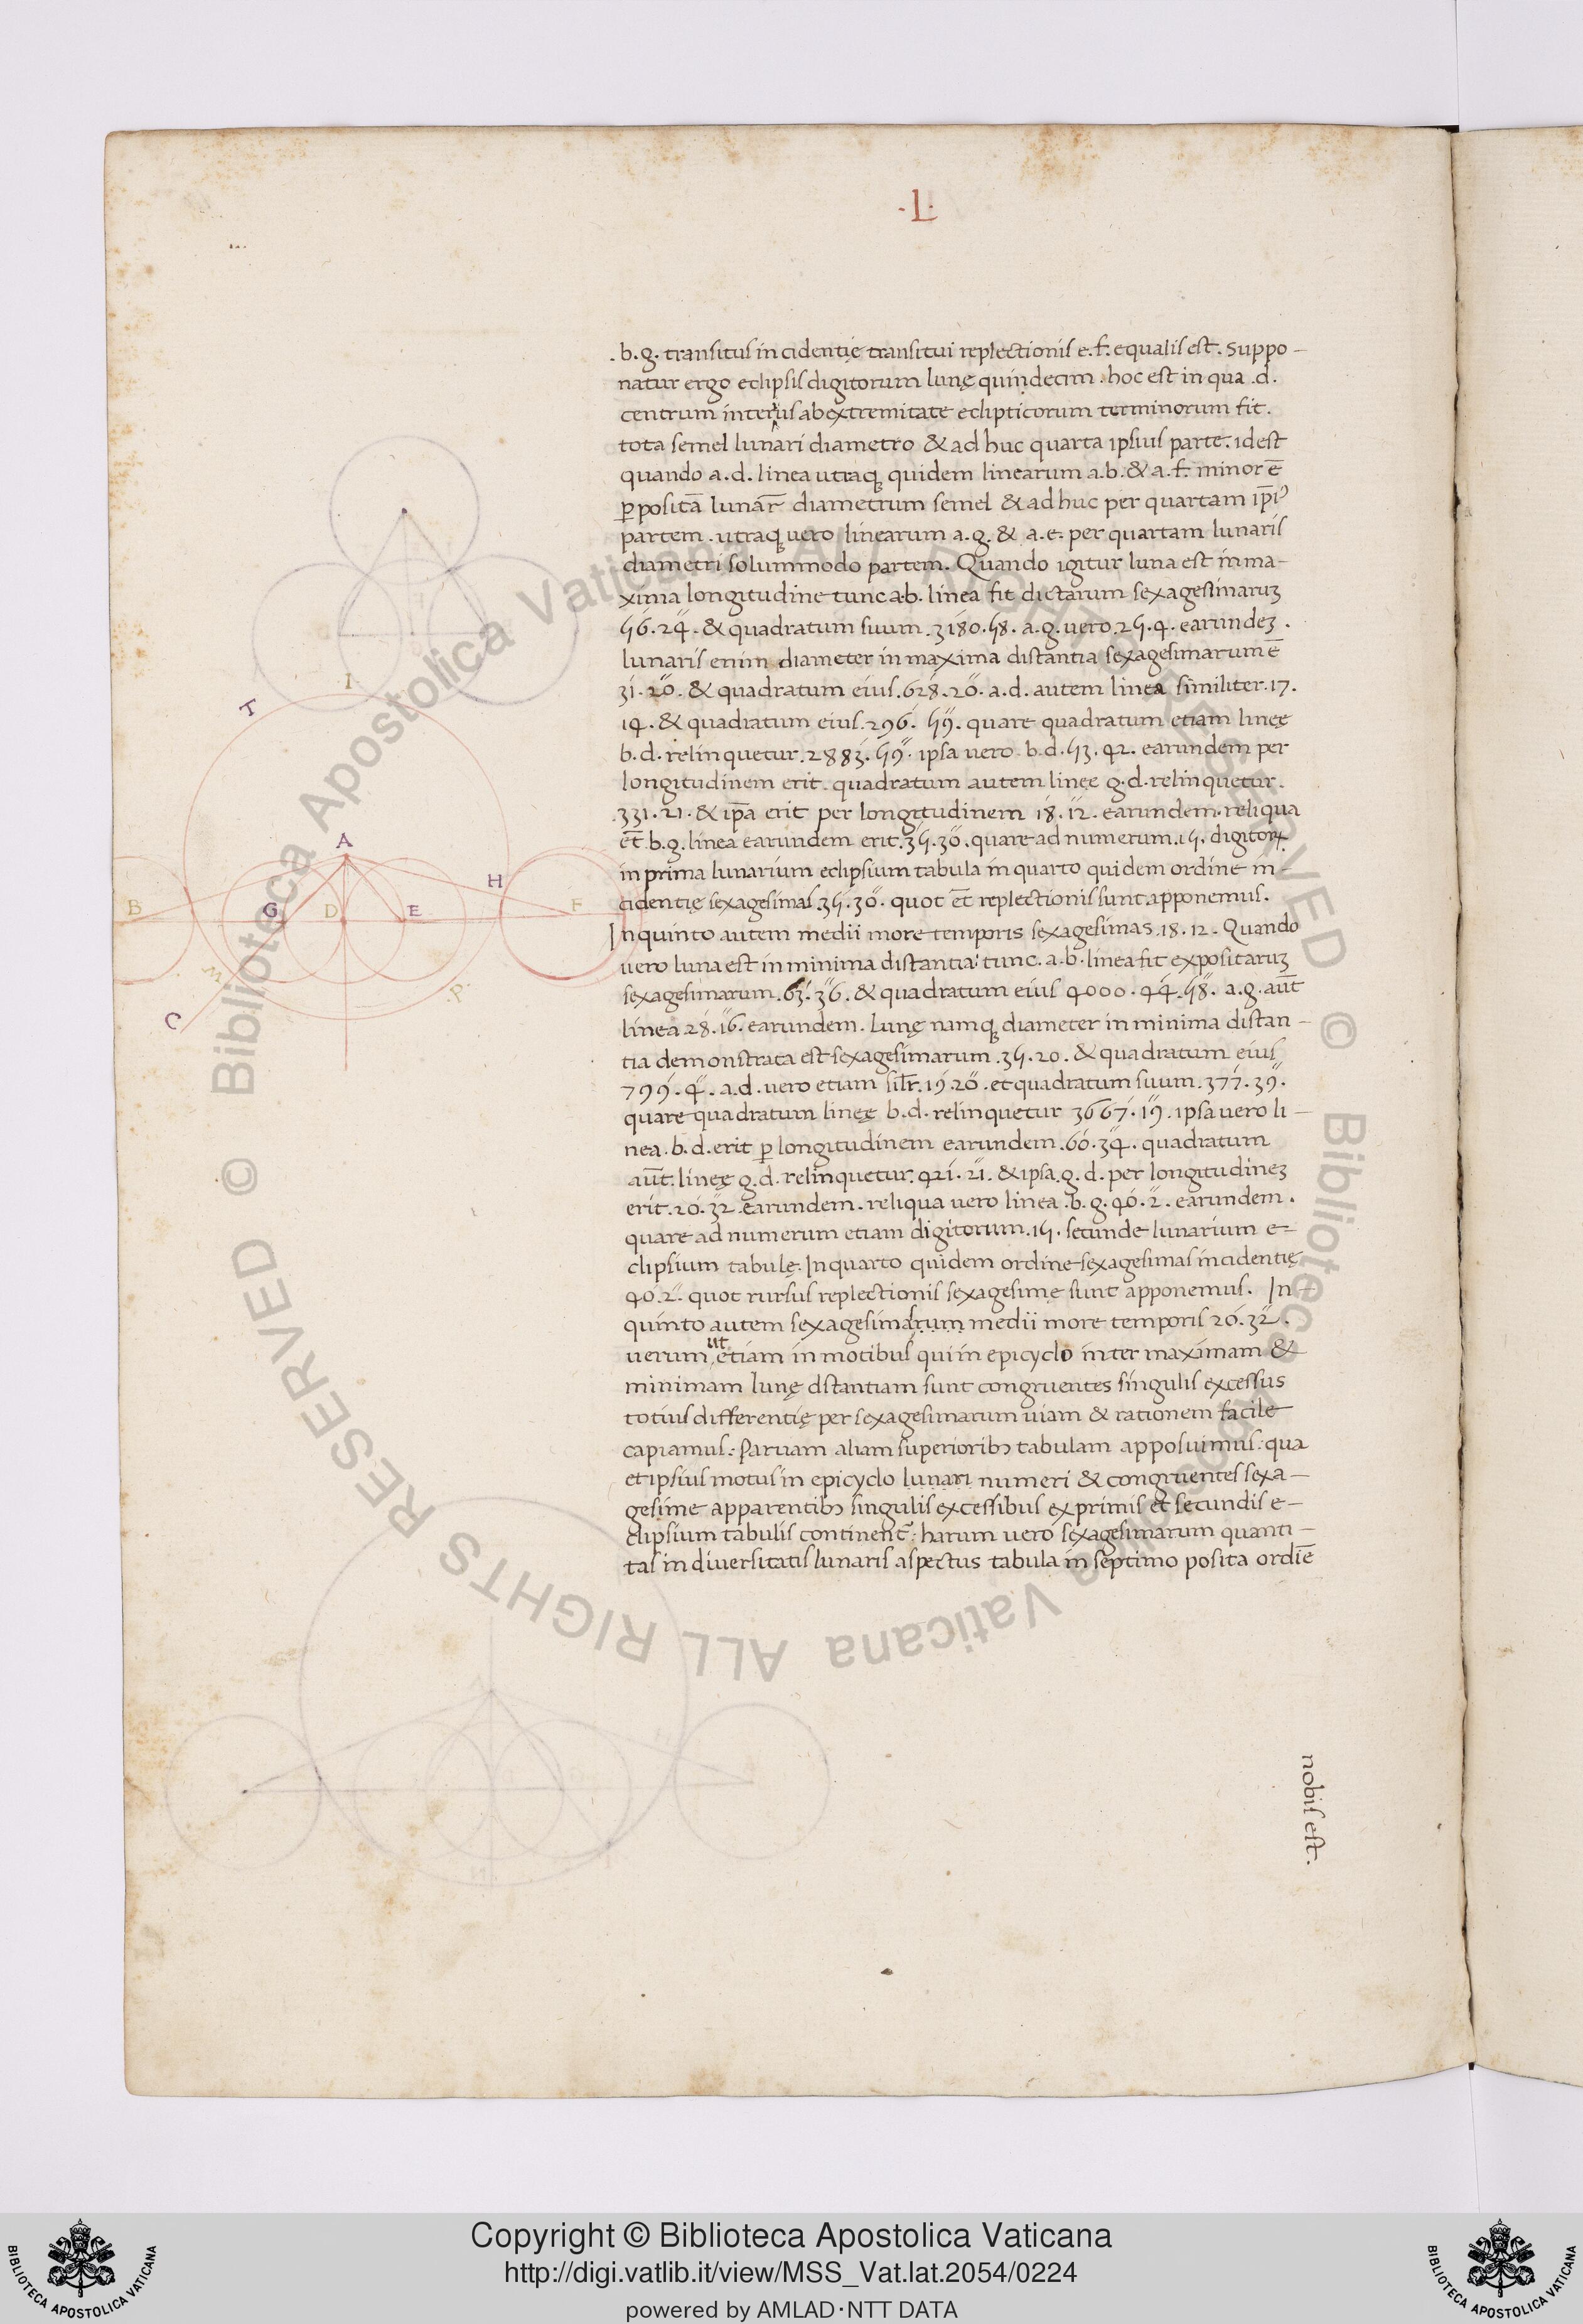 ·L·
.b.g. transitus incidentię transitui repletionis e.f. equalis est. Suppo-
natur ergo eclipsis digitorum lunę quindecim. hoc est in qua .d.
centrum interius ab extremitate eclipticorum terminorum fit.
tota semel lunari diametro & ad huc quarta ipsius parte. idest
quando a.d. linea utraq; quidem linearum a.b. & a.f. minor ē
p positā lunar̄ diametrum semel & ad huc per quartam ip̄i᾿
partem. utraq; uero linearum a.g. & a.e. per quartam lunaris
diametri solummodo partem. Quando igitur luna est in ma-
xima longitudine tunc a.b. linea fit dictarum sexagesimaruʒ
56. 24. & quadratum suum .3180.58. a.g. uero .25.4. earundeʒ.
lunaris enim diameter in maxima distantia sexagesimarum ē
31. 20. & quadratum eius .628.20. a.d. autem linea similiter .17.
14. & quadratum eius .296. 59. quare quadratum etiam linęę
b.d. relinquetur .2883. 59. ipsa uero .b.d. 53. 42. earundem per
longitudinem erit. quadratum autem linęe g.d. relinquetur.
.331.21. & ip̄a erit per longitudinem 18. 12. earundem. reliqua
et̄ b.g. linea earundem erit .35. 30. quare ad numerum .15. digitoꝝ
in prima lunarium eclipsium tabula in quarto quidem ordine in-
cidentię sexagesimas .35. 30. quot et̄ repletionis sunt apponemus.
In quinto autem medii more temporis sexagesimas .18. 12. Quando
uero luna est in minima distantia: tunc .a.b. linea fit expositaruʒ
sexagesimarum .63. 36. & quadratum eius 4000. 44. 58. a.g. aut̄
linea 28. 16. earundem. Lunę namq; diameter in minima distan-
tia demonstrata est sexagesimarum .35. 20. & quadratum eius
799. 4. a.d. uero etiam silr̄. 19 20. et quadratum suum .377. 39.
quare quadratum linęę b.d. relinquetur 3667. 19. ipsa uero li-
nea .b.d. erit p longitudinem earundem .60. 34. quadratum
aut̄. linęę g.d. relinquetur. 421. 21. & ipsa .g.d. per longitudineʒ
erit .20. 32. earundem. reliqua uero linea .b.g. 40. 2. earundem.
quare ad numerum etiam digitorum .15. secunde lunarium e-
clipsium tabulę. In quarto quidem ordine sexagesimas incidentię
40. 2. quot rursus repletionis sexagesimę sunt apponemus. In
quinto autem sexagesimasrum medii more temporis 20. 32.
uerum ut etiam in motibus qui in epicyclo inter maximam &
minimam lunę dstantiam sunt congruentes singulis excessus
totius differentię per sexagesimarum uiam & rationem facile
capiamus: paruam aliam superiorib; tabulam apposuimus: qua
et ipsius motus in epicyclo lunari numeri & congruentes sexa-
gesime apparentib; singulis excessibus ex primis et secundis e-
clipsium tabulis continent᷑: harum uero sexagesimarum quanti-
tas in diuersitatis lunaris aspectus tabula in septimo posita ordiē
nobis est.
I
T
A
H
B
G
D
E
F
M
P
C
Copyright © Biblioteca Apostolica Vaticana
http://digi.vatlib.it/view/MSS_Vat.lat.2054/0224
powered by AMLAD·NTT DATA
BIBLIOTECA APOSTOLICA VATICANA
BIBLIOTECA APOSTOLICA VATICANA
© Biblioteca Apostolica Vaticana ALL RIGHTS RESERVED © Biblioteca Apostolica Vaticana ALL RIGHTS RESERVED